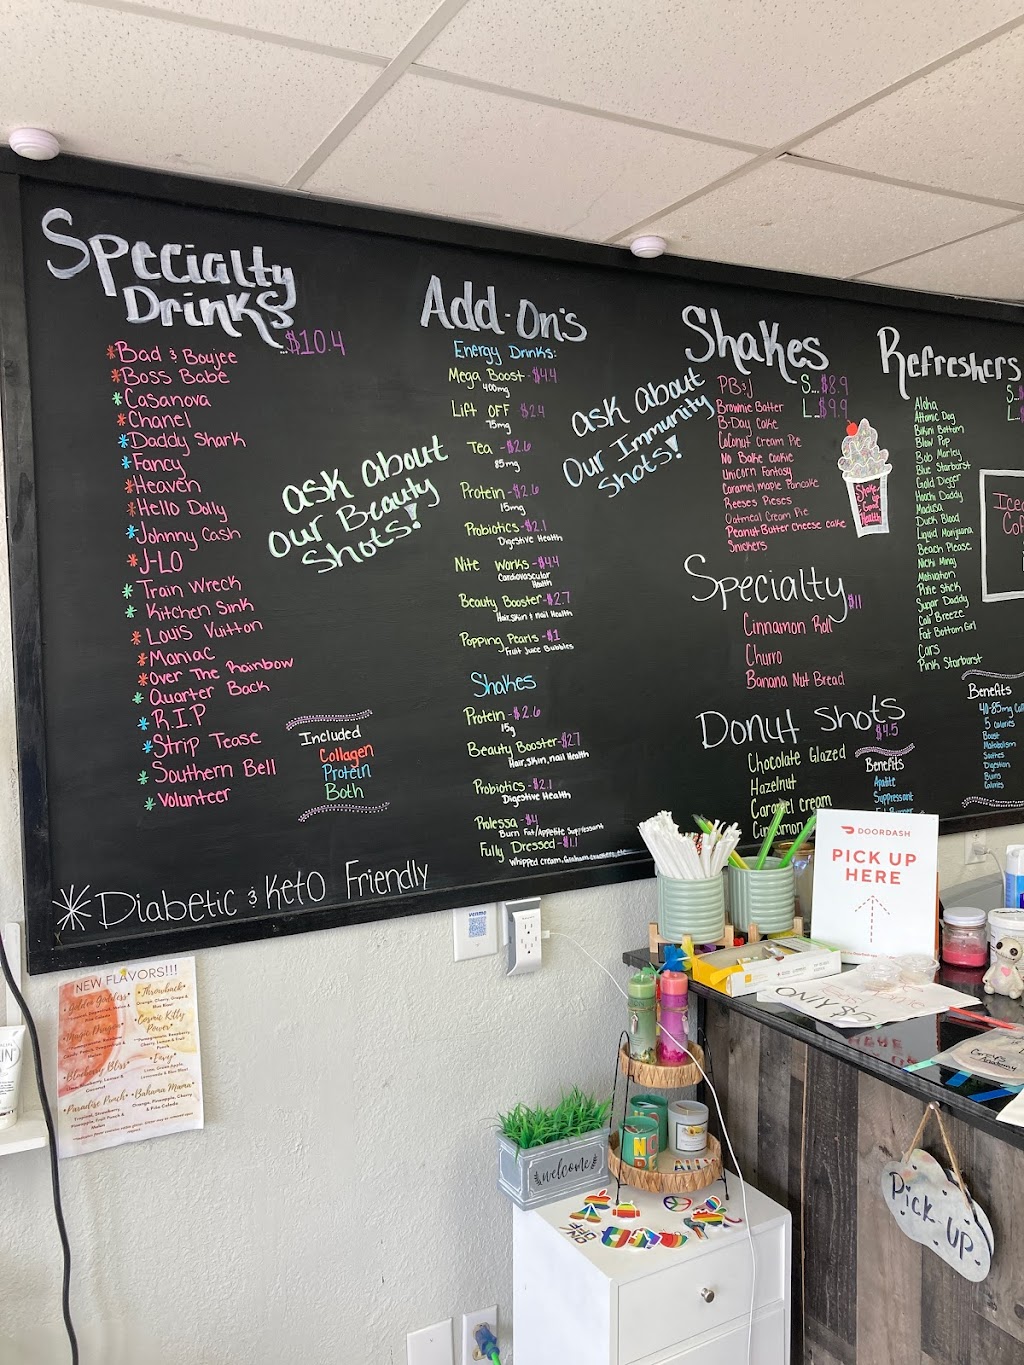 Specialty
Drinks
...$10.4
*Bad & Boujee
*Boss Babe
*Casanova
*Chanel
*Daddy Shark
*Fancy
*Heaven
*Hello Dolly
*Johnny Cash
*J-LO
*Train Wreck
*Kitchen Sink
*Louis Vuitton
*Maniac
*Over The Rainbow
*Quarter Back
*R.I.P
*Strip Tease
*Southern Bell
*Volunteer
Included
Collagen
Protein
Both
*Diabetic & Keto Friendly
ask about
Our Beauty
Shots!
Add-On's
Energy Drinks:
Mega Boost-$4.4
400mg
Lift OFF $2.4
75mg
Tea -$2.6
85mg
Protein-$2.6
15mg
Probiotics-$2.1
Digestive Health
Nite Works-$4.4
Cardiovascular
Health
Beauty Booster-$2.7
Hair, Skin & nail Health
Popping Pearls-$1
Fruit Juice Bubbles
Shakes
Protein-$2.6
15g
Beauty Booster-$2.7
Hair, Skin, nail Health
Probiotics-$2.1
Digestive Health
Prolessa-$4
Burn Fat/Appetite Suppressant
Fully Dressed-$1.1
Whipped cream, Graham crackers, etc.
ask about
Our Immunity
Shots!
Shakes
S...$8.9
L..$9.9
PB&J
Brownie Batter
B-Day Cake
Coconut Cream Pie
No Bake Cookie
Unicorn Fantasy
Caramel Maple Pancake
Reese's Pieses
Oatmeal Cream Pie
Peanut Butter Cheese cake
Snickers
Shake
Good
Health
Specialty $11
Cinnamon Roll
Churro
Banana Nut Bread
Donut Shots
$4.5
Chocolate Glazed
Hazelnut
Caramel cream
Cinnamon
Benefits
Apatite
Suppressant
Refreshers
S..
L..
Aloha
Attomic Dog
Bikini Bottom
Blow Pop
Bob Marley
Blue Starburst
Gold Digger
Hoochi Daddy
Madusa
Duck Blood
Liquid Marijuana
Beach Please
Nicki Minaj
Motivation
Pixie Stick
Sugar Daddy
Cali Breeze
Fat Bottom Girl
Cars
Pink Starburst
Iced
Benefits
40-85mg
5 calories
Boost
Matabolism
Digestion
Burns
Calories
venmo
DOORDASH
PICK UP
HERE
ONLY $
NEW FLAVORS!!!
*Throwback*
Orange, Cherry, Grape &
Blue Blast
*Cosmic Kitty
Power*
*Magic Dragon*
*Envy*
*Blueberry Bliss*
*Paradise Punch*
*Bahama Mama*
Orange, Pineapple, Cherry
& Piña Colada
welcome
ON
OFF
ALLY
Grey's
Academy
Pick UP